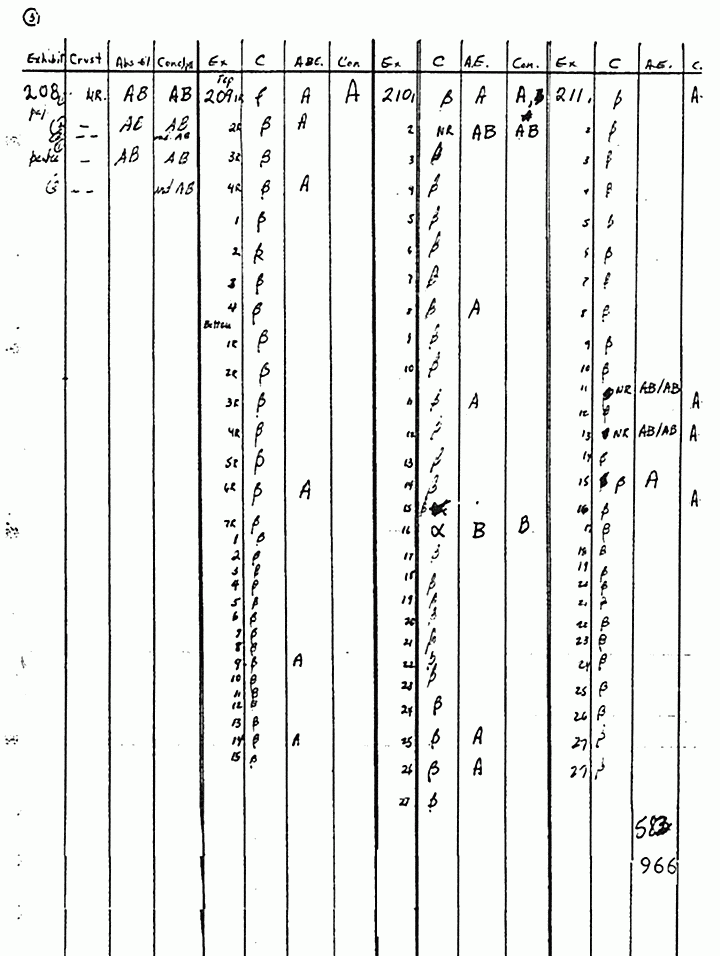 Exhibit Crust Abs-El Conclus Ex C ABE. Con Ex C A.E. Con. Ex C A.E. C.
Top
208 NR. AB AB 209 1R β A A 210 1 β A A, 211 1 β A
AE AB 2R β A 2 NR AB AB 2 β
ind. AB
— AB AB 3R β 3 β 3 β
-- ind AB 4R β A 4 β 4 β
1 β 5 β 5 β
2 β 6 β 6 β
3 β 7 β 7 β
4 β 8 β A 8 β
Bottom
1R β 9 β 9 β
2R β 10 β 10 β
11 NR AB/AB
3R β 11 β A 12 β A
4R β 12 β 13 NR AB/AB A
5R β 13 β 14 β
6R β A 14 β 15 β A
15 16 β A
7R β 16 α B B 17 β
1 β
2 β 17 β 18 β
3 β 18 β 19 β
4 β 20 β
5 β 19 β 21 β
6 β 20 β 22 β
7 β 21 β 23 β
8 β
9 β A 22 β 24 β
10 β 23 β
11 β 25 β
12 β 24 β 26 β
13 β
14 β A 25 β A 27 β
15 β 26 β A 27 β
27 β
966